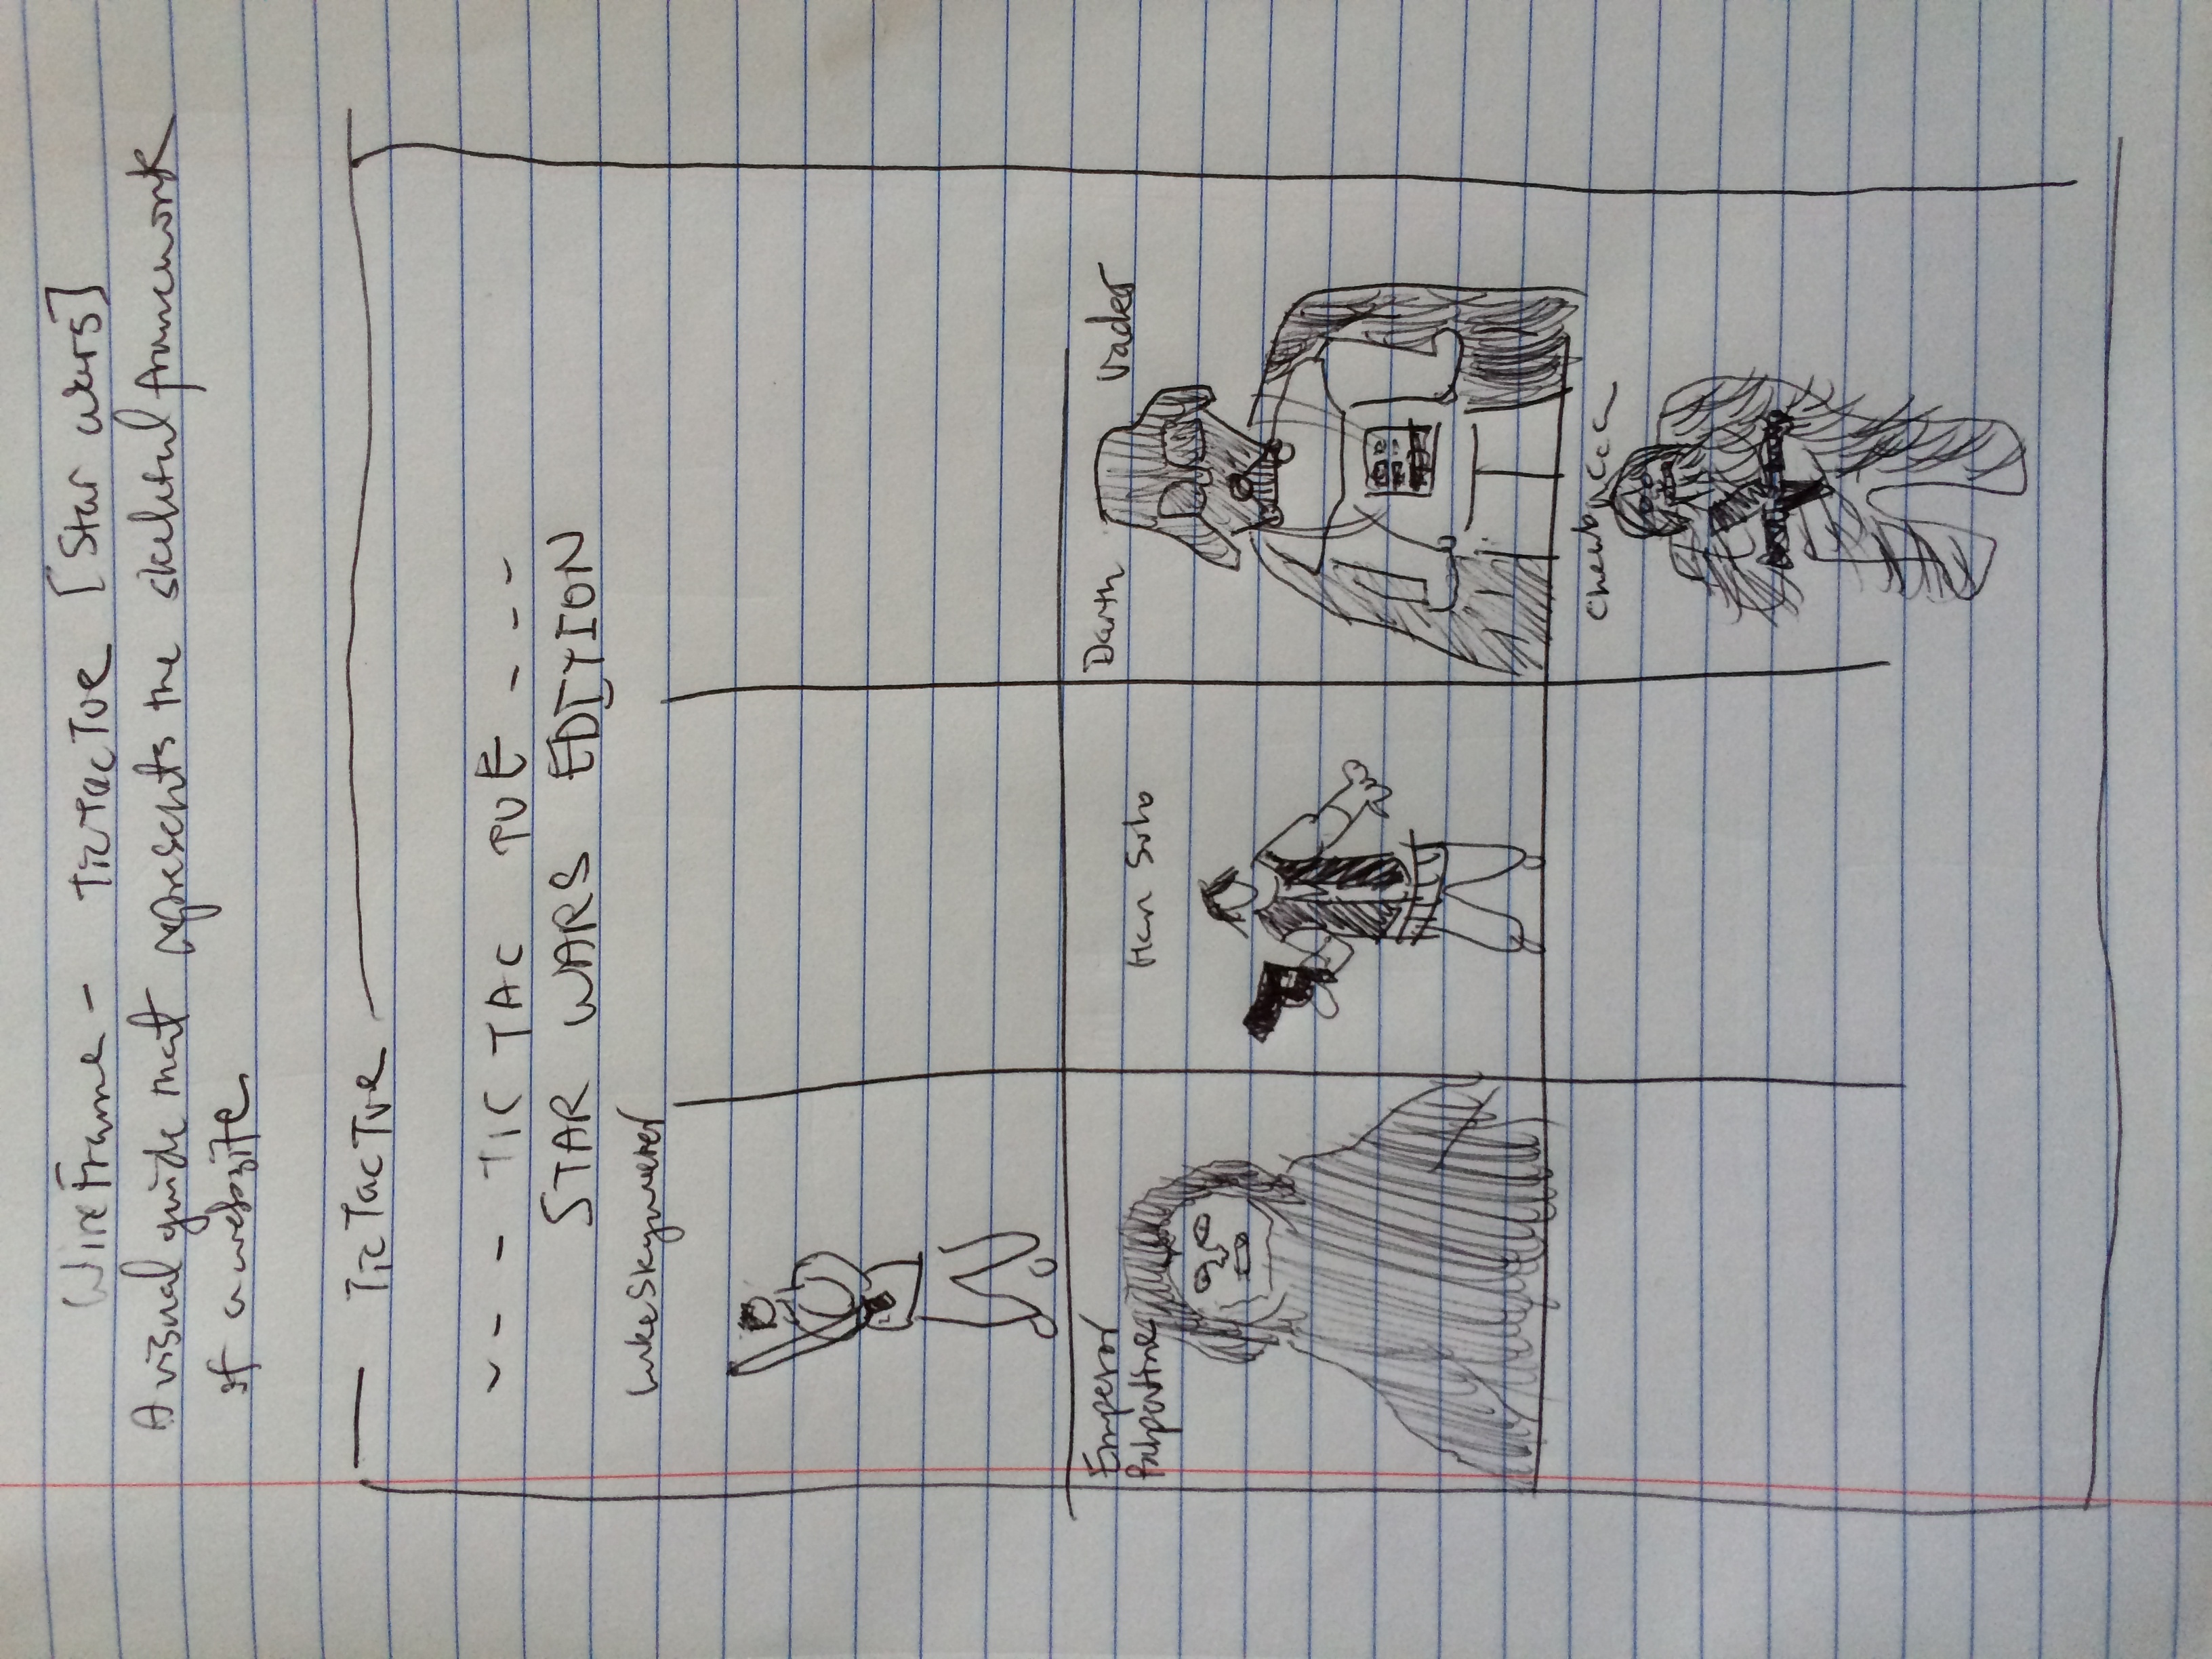 WireFrame - TicTacToe [Star Wars]
A visual guide that represents the skeletal framework
of a website
TicTacToe
--- TIC TAC TOE ---
STAR WARS EDITION
Luke Skywalker
Emperor
Palpatine
Han Solo
Darth Vader
Chewbacca